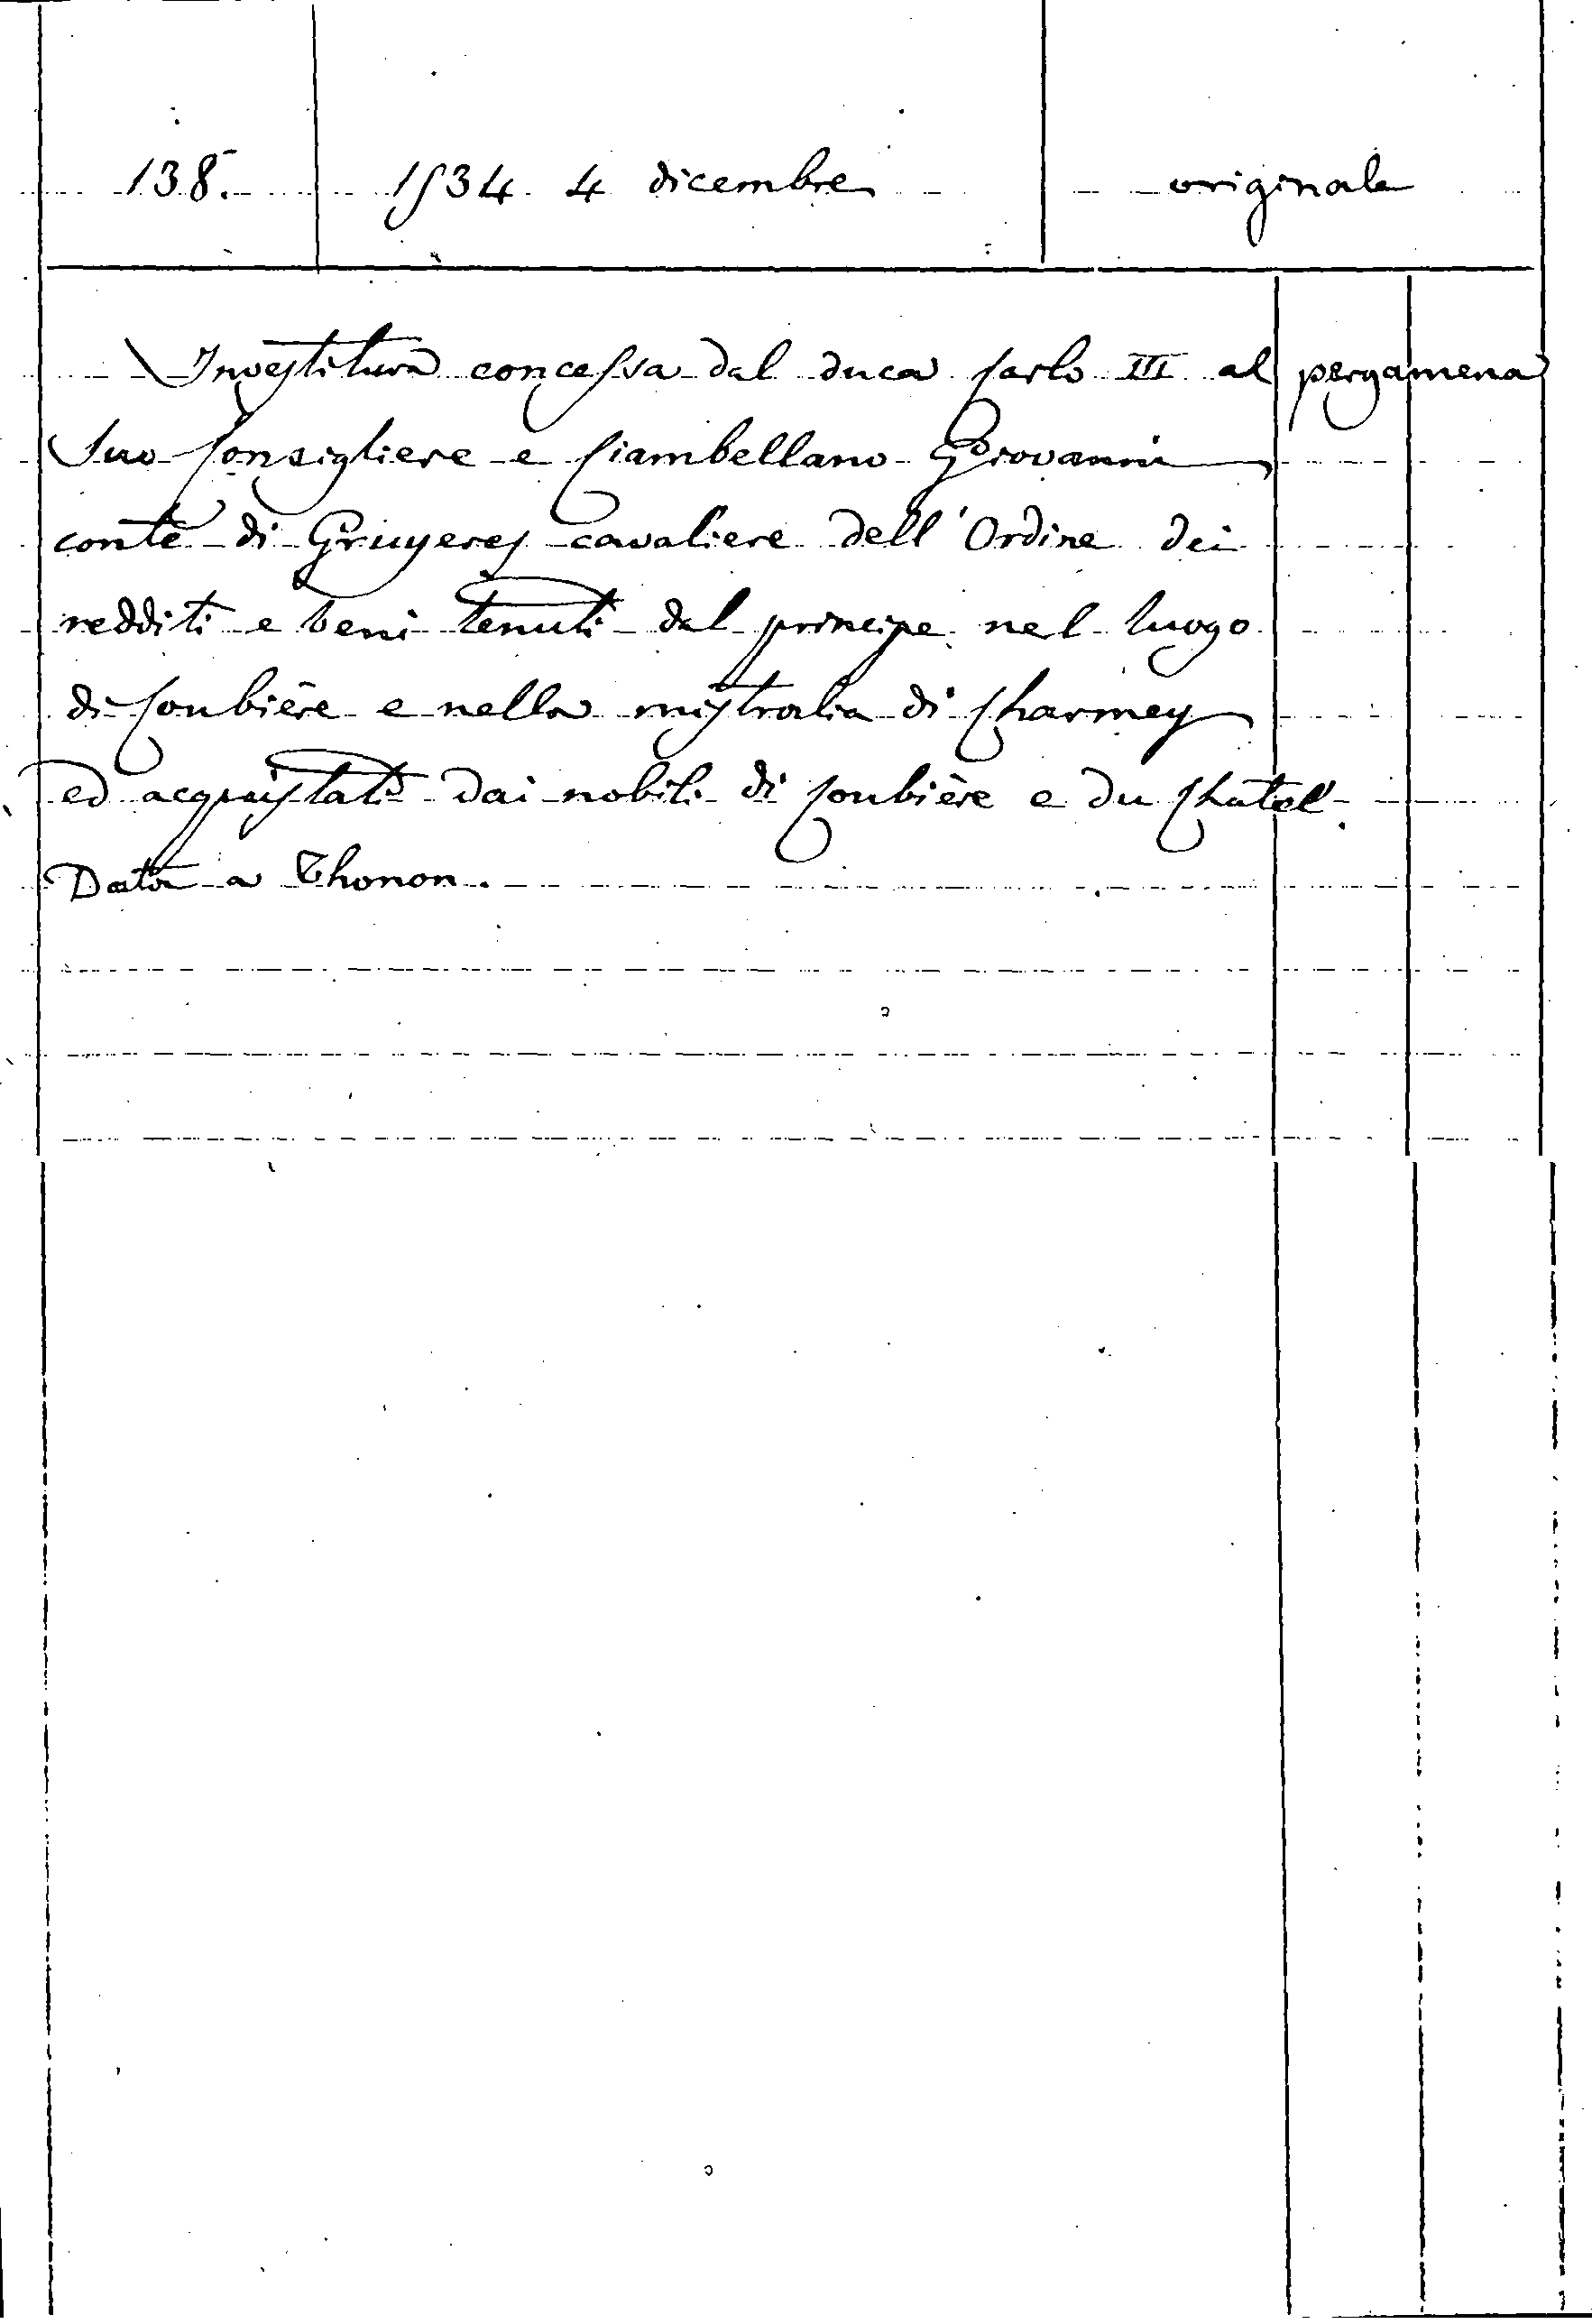 138. 1534. 4 dicembre originale
Investitura concessa dal duca Carlo III al pergamena
Suo Consigliere e Ciambellano Giovanni
conte di Gruyeres cavaliere dell'Ordine dei
redditi e beni tenuti dal principe nel luogo
di Corbière e nella mistralia di Charmey
ed acquistati dai nobili di Corbière e du Chatel.
Data a Thonon.